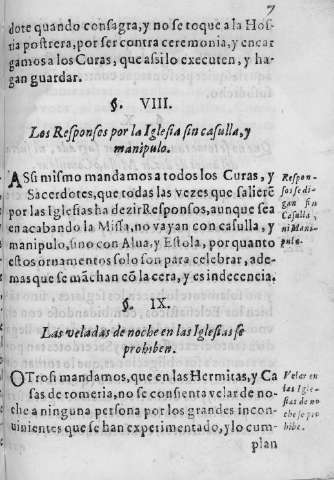 7
dote quando consagra, y no se toque a la Hos-
tia postrera, por ser contra ceremonia, y encar
gamos a los Curas, que assi lo executen, y ha-
gan guardar.
§. VIII.
Los Responsos por la Iglesia sin casulla, y
manipulo.
ASsi mismo mandamos a todos los Curas, y
Sacerdotes, que todas las vezes que salierẽ
por las Iglesias ha dezir Responsos, aunque sea
en acabando la Missa, no vayan con casulla, y
manipulo, sino con Alua, y Estola, por quanto
estos ornamentos solo son para celebrar, ade-
mas que se mãchan cõ la cera, y es indecencia.
Respon-
sos se di-
gan sin
Casulla,
ni Mani-
pulo.
§. IX.
Las veladas de noche en las Iglesias se
prohiben.
OTrosi mandamos, que en las Hermitas, y Ca
sas de romeria, no se consienta velar de no-
che a ninguna persona por los grandes incon-
uinientes que se han experimentado, y lo cum-
plan
Velar en
las Igle-
sias de no
che se pro
hibe.